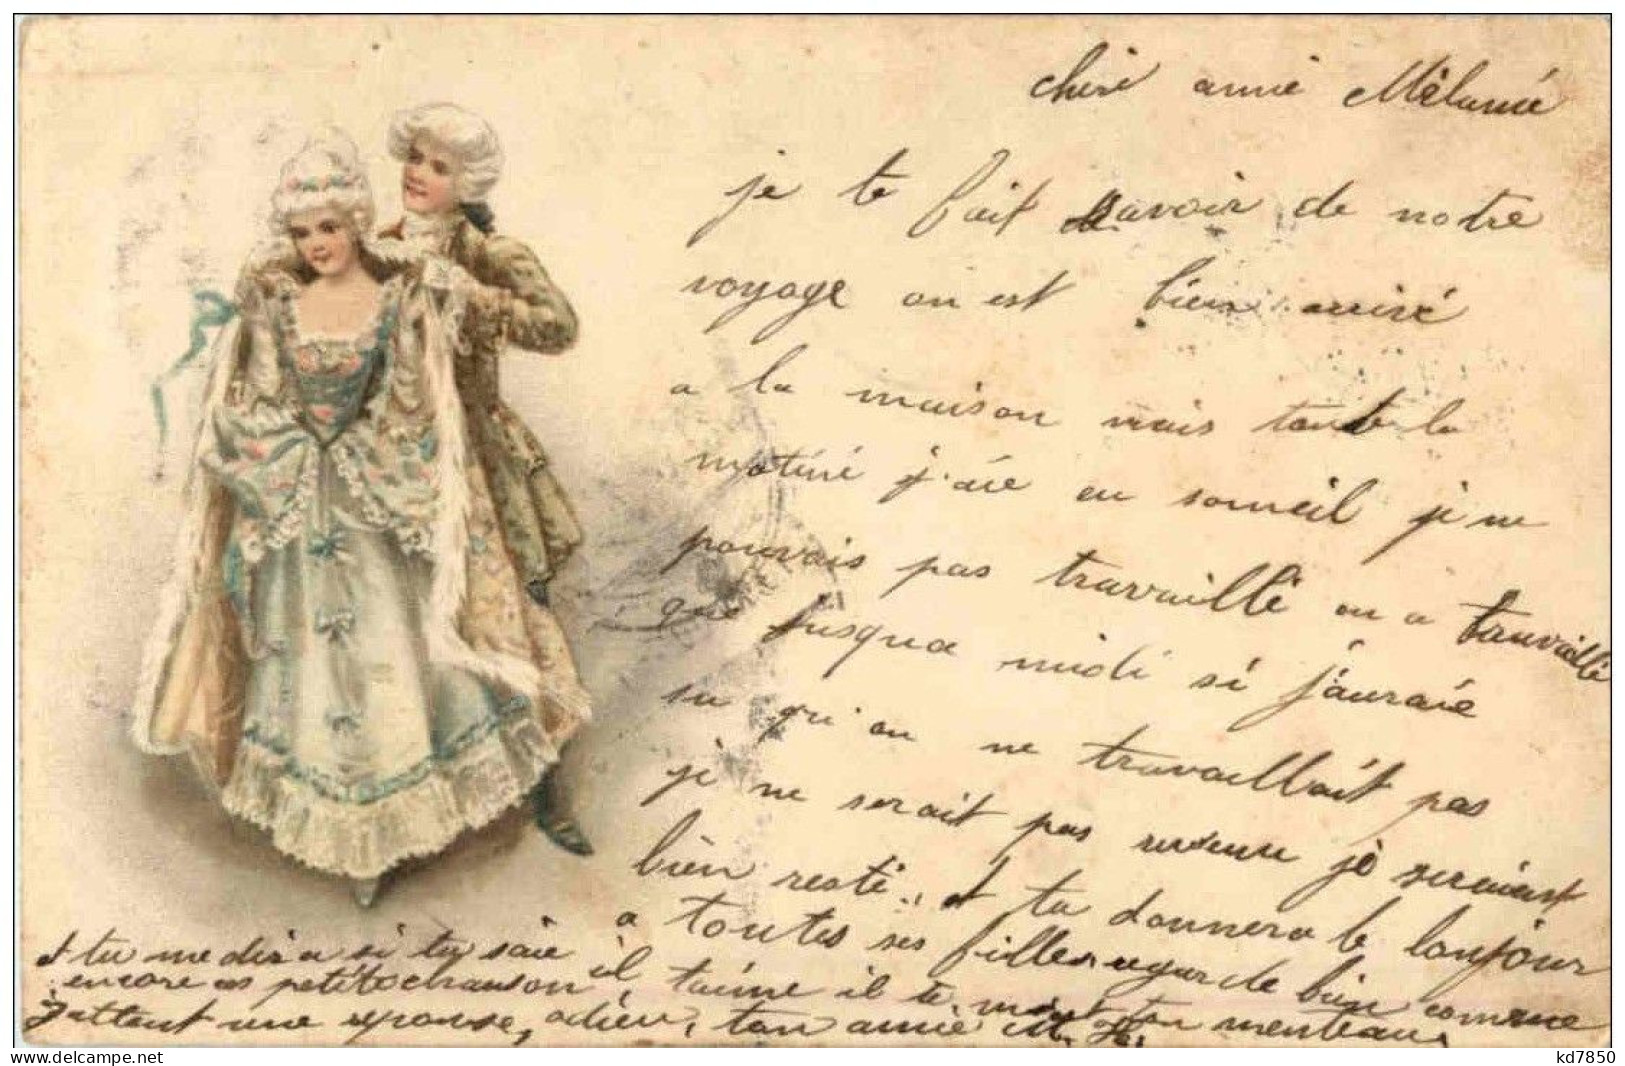 chere amie Mélanie
je te fait savoir de notre
voyage on est bien arrivé
a la maison mais toute la
matiné j'aie eu someil je ne
pouvais pas travaillé on a travaillé
que jusqua midi si j'auraie
su qu'on ne travaillait pas
je ne serait pas revenu je seraient
bien resté, et tu donnera le bonjour
a toutes ses filles regarde bien comme
il t'aime il te met ton menteau
et tu me dira si tu saie
encore as petite chanson
j'attent une reponse, adieu, ton amie M. H.
kd7850
delcampe.net